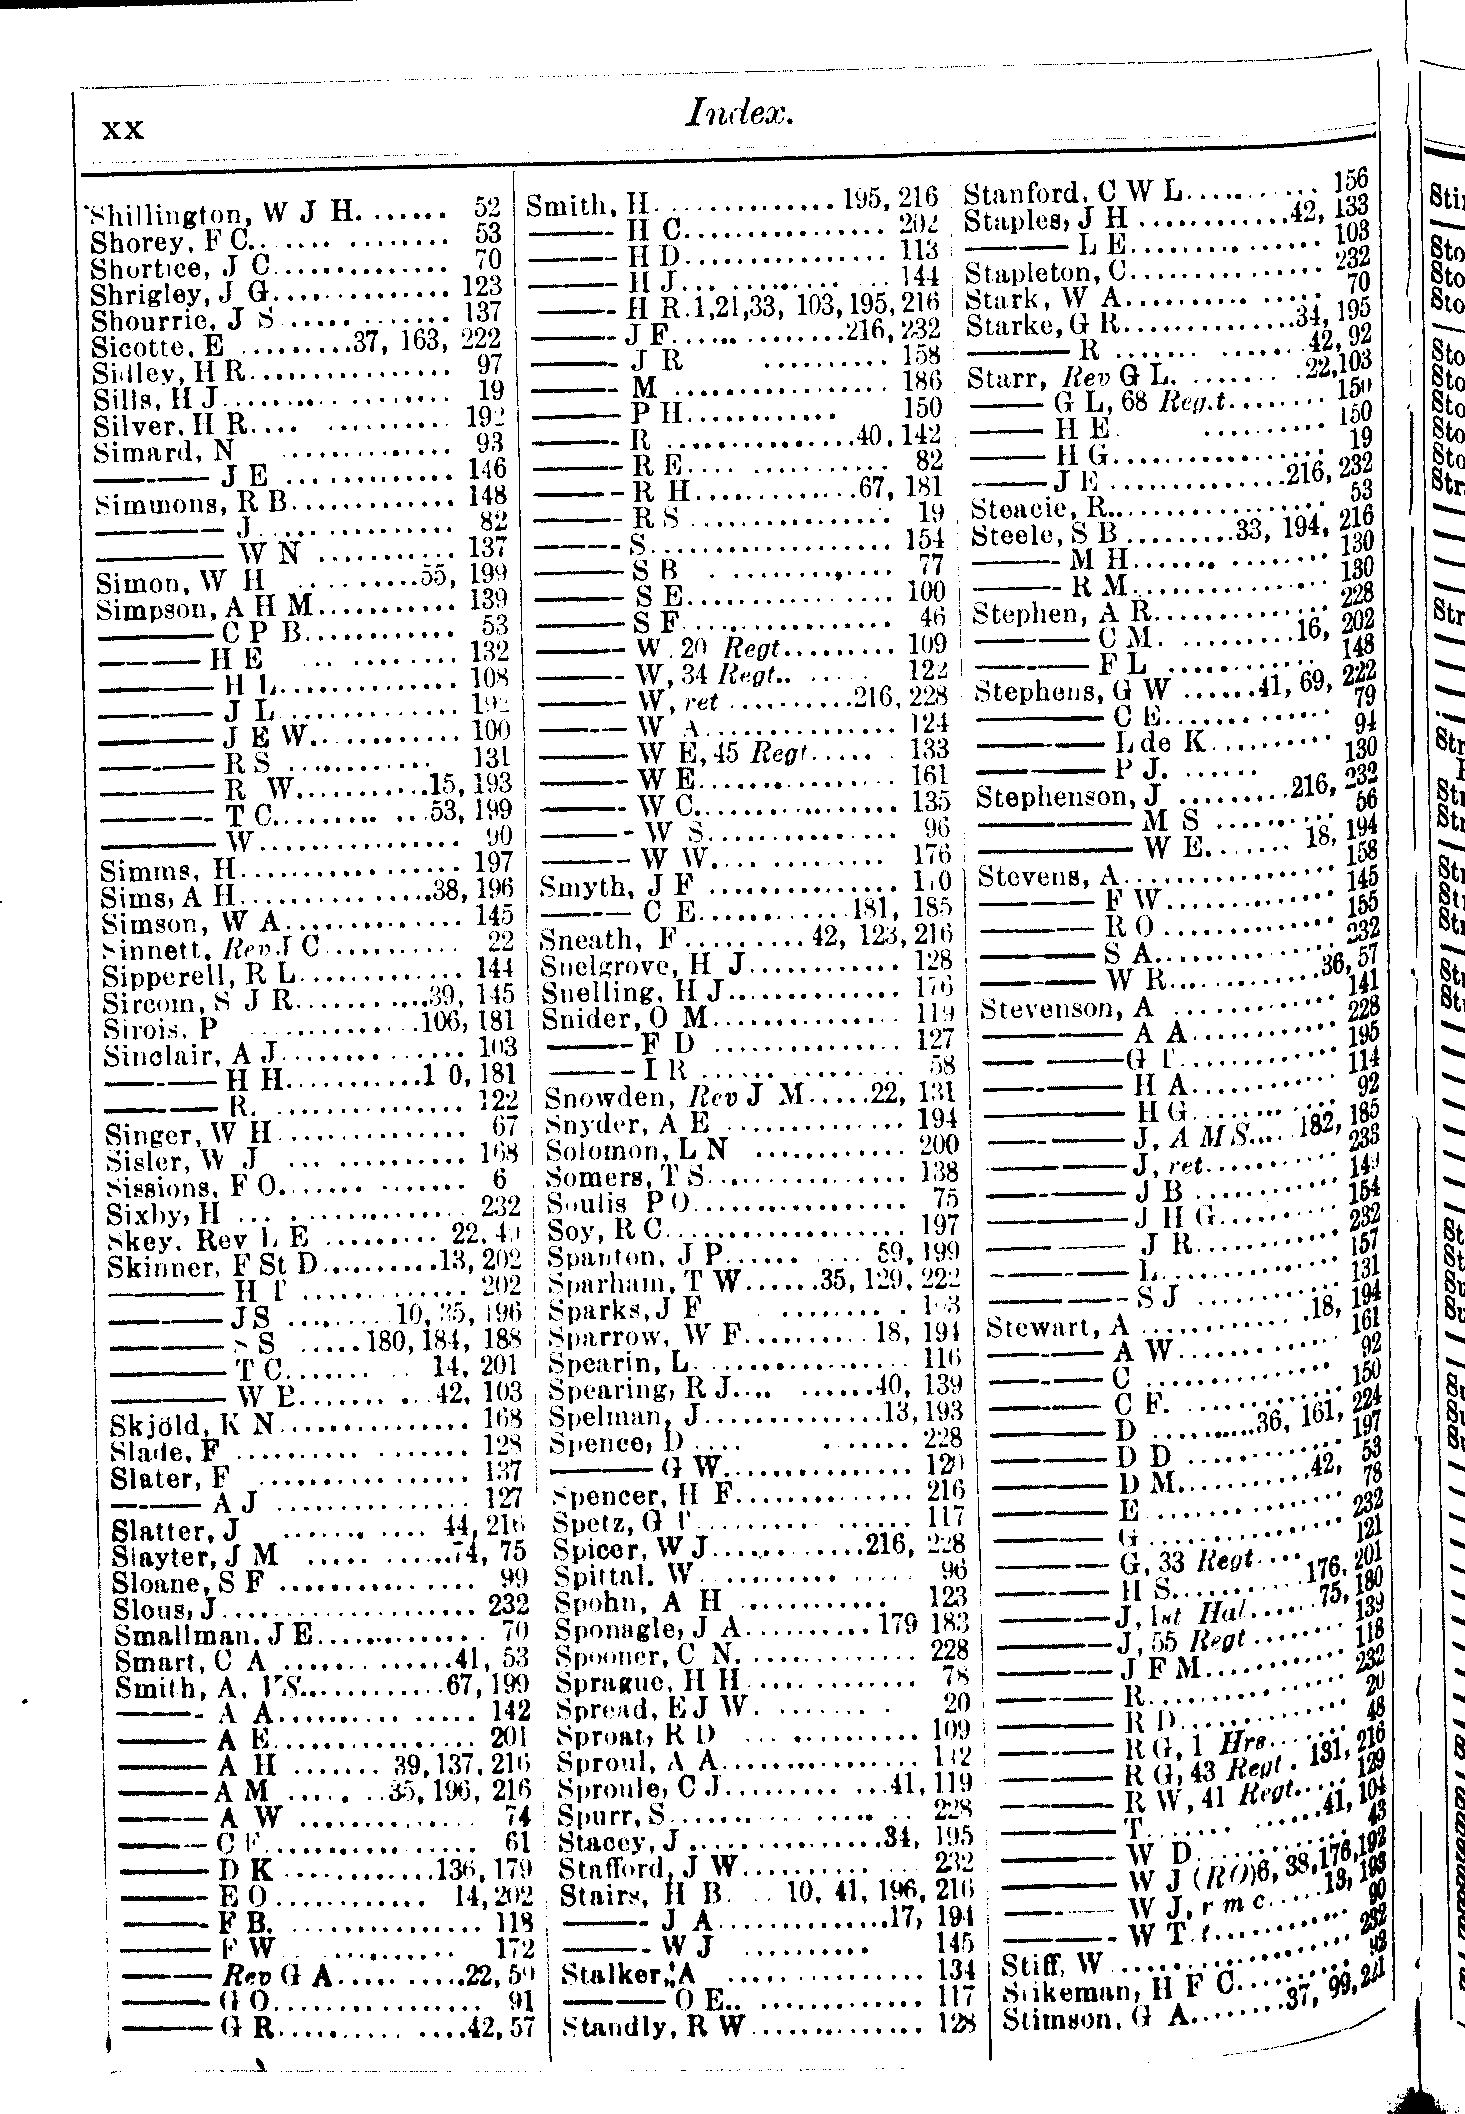 xx
Index.
Shillington, W J H. ...... 52
Shorey, F C.. ...... ........ 53
Shortice, J C.............. 70
Shrigley, J G.............. 123
Shourrie, J S ..... ....... 137
Sicotte, E .........37, 163, 222
Sidley, H R................ 97
Sills, H J....... .. ........ 19
Silver, H R.... .......... 192
Simard, N ............. 93
———— J E ............. 146
Simmons, R B............. 148
———— J.............. 82
———— W N ........... 137
Simon, W H .........55, 199
Simpson, A H M........... 139
———— C P B............ 53
———— H E ... ........ 132
———— H L.............. 108
———— J L .............. 192
———— J E W............ 100
———— R S ........... 131
———— R W...........15, 193
———— T C......... ...53, 199
———— W................ 90
Simms, H................. 197
Sims, A H................38, 196
Simson, W A.............. 145
Sinnett, Rev J C........... 22
Sipperell, R L............. 144
Sircom, S J R...........39, 145
Sirois, P .............106, 181
Sinclair, A J........ ...... 103
———— H H...........1 0, 181
———— R. ............... 122
Singer, W H............... 67
Sisler, W J ... .......... 168
Sissions, F O...... ....... 6
Sixby, H ... ............... 232
Skey, Rev L E ......... 22, 49
Skinner, F St D..........13, 202
———— H T ............. 202
———— J S ...... 10, 35, 196
———— S S .....180, 184, 188
———— T C....... .. 14, 201
———— W B........ ..42, 103
Skjöld, K N............... 168
Slade, F .................. 128
Slater, F ................ 137
———— A J ............... 127
Slatter, J ....... .... 44, 216
Slayter, J M ..... ......74, 75
Sloane, S F ............... 99
Slous, J.................... 232
Smallman, J E............. 70
Smart, C A .............41, 53
Smith, A, VS...........67, 199
———— A A.......... ..... 142
———— A E................ 201
———— A H ....... 39, 137, 216
———— A M ..... ..35, 196, 216
———— A W .............. 74
———— C F................. 61
———— D K ............136, 179
———— E O............ 14, 202
———— F B. .............. 118
———— F W ........... 172
———— Rev G A..... .....22, 59
———— G O................ 91
———— G R......... .....42, 57
Smith, H..............195, 216
———— H C................ 202
———— H D................ 113
———— H J... ...... .... .. 144
———— H R.1,21,33, 103, 195, 216
———— J F...... ........216, 232
———— J R .......... 158
———— M .................. 186
———— P H............ 150
———— R ...............40, 142
———— R E.... ........... 82
———— R H.............67, 181
———— R S ................ 19
———— S................... 154
———— S B . ............. 77
———— S E................ 100
———— S F................. 46
———— W, 20 Regt......... 109
———— W, 34 Regt.. ..... 122
———— W, ret ..........216, 228
———— W A................ 124
———— W E, 45 Regt...... . 133
———— W E................ 161
———— W C................ 135
———— W S............... 96
———— W W.... ......... 176
Smyth, J F ...............
———— C E............181, 185
Sneath, F..........42, 123, 216
Snelgrove, H J............ 128
Snelling, H J.............. 176
Snider, O M............... 119
———— F D ............... 127
———— I R ...... ......... 58
Snowden, Rev J M.....22, 131
Snyder, A E ............. 194
Solomon, L N ............ 200
Somers, T S............... 138
Soulis P O................. 75
Soy, R C................... 197
Spanton, J P...... .... 59, 199
Sparham, T W......35, 129, 222
Sparks, J F ........ .
Sparrow, W F..........18, 194
Spearin, L................. 116
Spearing, R J.... ......40, 139
Spelman, J..............13, 193
Spence, D .... ....... 228
———— G W.............. 129
Spencer, H F.............. 216
Spetz, G T........ ....... 117
Spicer, W J............216, 228
Spittal, W................ 96
Spohn, A H ............ 123
Sponagle, J A..........179 183
Spooner, C N. ............ 228
Sprague, H H............. 78
Spread, E J W. ........ 20
Sproat, R D .............. 109
Sproul, A A............... 142
Sproule, C J......... ...41, 119
Spurr, S............... .. 228
Stacey, J ...............34, 195
Stafford, J W.......... ... 232
Stairs, H B. .. 10, 41, 196, 216
———— J A..............17, 194
———— W J .......... 145
Stalker, A ............... 134
———— O E.. ............. 117
Standly, R W.............. 128
Stanford, C W L........... 156
Staples, J H ............42, 133
———— L E................ 103
Stapleton, C............... 232
Stark, W A.......... ..... 70
Starke, G R.............34, 195
———— R ....... .......42, 92
Starr, Rev G L. ....... .22,103
———— G L, 68 Reg.t........ 150
———— H E. .......... 150
———— H G................ 19
———— J E ..............216, 232
Steacie, R................. 53
Steele, S B .........33, 194, 216
———— M H............... 130
———— R M............... 130
Stephen, A R.............. 228
———— C M. .........16, 202
———— F L .............. 148
Stephens, G W ......41, 69, 222
———— C E.............. 79
———— L de K.......... 94
———— P J. ...... 130
Stephenson, J .........216, 232
———— M S .......... 56
———— W E....... 18, 194
Stevens, A................ 158
———— F W.............. 145
———— R O.............. 155
———— S A............... 232
———— W R.............36, 57
Stevenson, A ............ 141
———— A A............ 228
———— G T............ 195
———— H A............ 114
———— H G............ 92
———— J, A M S.... 182, 185
———— J, ret........... 235
———— J B ............ 149
———— J H G.......... 154
———— J R............ 232
———— L.............. 157
———— S J ........... 131
Stewart, A ............18, 194
———— A W............. 161
———— C ............... 92
———— C F. ............ 150
———— D .........36, 161, 224
———— D D ............ 197
———— D M..........42, 53
———— E ............... 78
———— G ............... 232
———— G, 33 Regt.... 121
———— H S..........176, 201
———— J, 1st Hal......75, 180
———— J, 55 Regt ........ 139
———— J F M............ 118
———— R................. 232
———— R D.............. 20
———— R G, 1 Hrs....... 48
———— R G, 43 Regt . 131, 216
———— R W, 41 Regt..... 129
———— T...... ......41, 104
———— W D............. 43
———— W J (RO)6, 38,176,192
———— W J, r m c.....13, 193
———— W T t........... 90
Stiff, W .................. 232
Stikeman, H F C.......... 93
Stimson, G A.......37, 99, 201